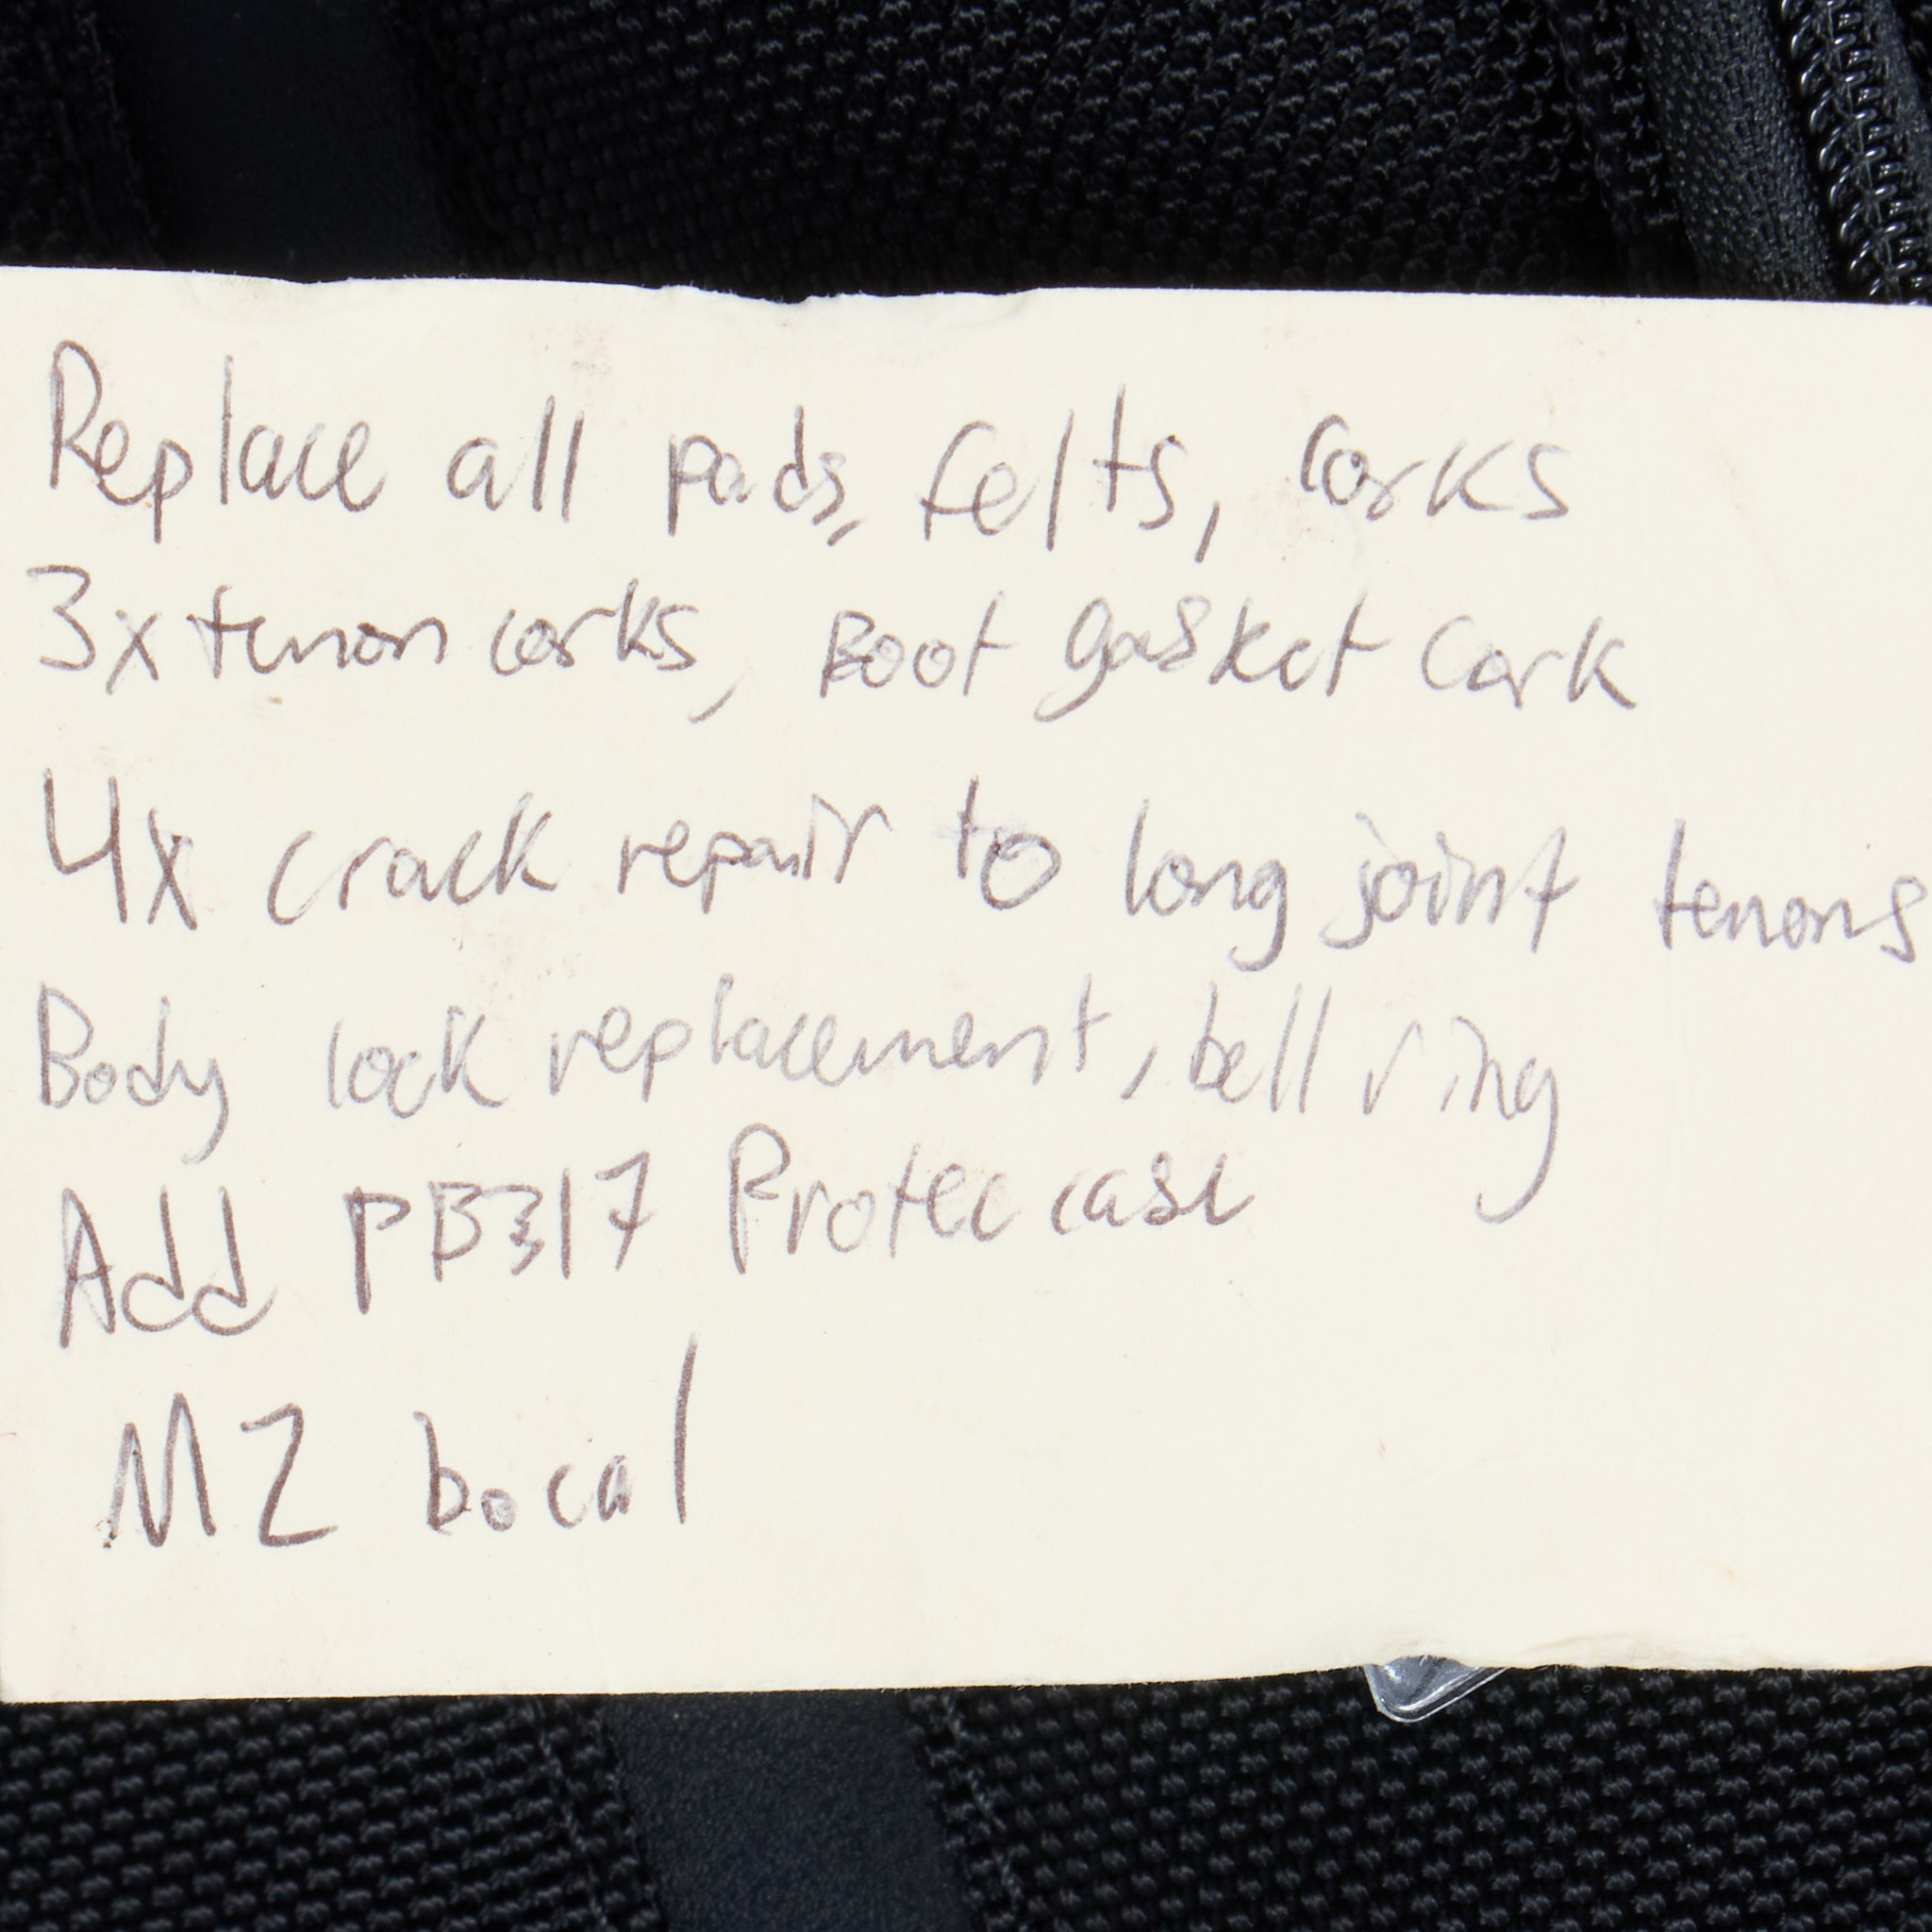 Replace all pads, felts, corks
3x tenon corks, Boot gasket cork
4x crack repair to long joint tenons
Body lock replacement, bell ring
Add PB317 Protec case
M2 bocal